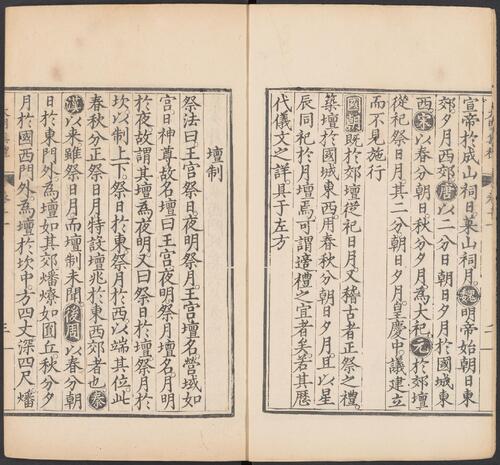 宣帝於成山祠日萊山祠月魏明帝始朝日東
郊夕月西郊唐以二分日朝日夕月於國城東
西宋以春分朝日秋分夕月為大祀元於郊壇
從祀祭日月其二分朝日夕月皇慶中議建立
而不見施行
國朝既於郊壇從祀日月又稽古者正祭之禮
築壇於國城東西用春秋分朝日夕月且以星
辰同祀於月壇焉可謂適禮之宜者矣若其歷
代儀文之詳具于左方
壇制
祭法曰王宮祭日夜明祭月王宮壇名營域如
宮日神尊故名壇曰王宮夜明祭月壇名月明
於夜故謂其壇為夜明又曰祭日於壇祭月於
坎以制上下祭日於東祭月於西以端其位此
春秋分正祭日月特設壇兆於東西郊者也秦
漢以來雖祭日月而壇制未聞後周以春分朝
日於東門外為壇如其郊燔燎如圜丘秋分夕
月於國西門外為壇於坎中方四丈深四尺燔